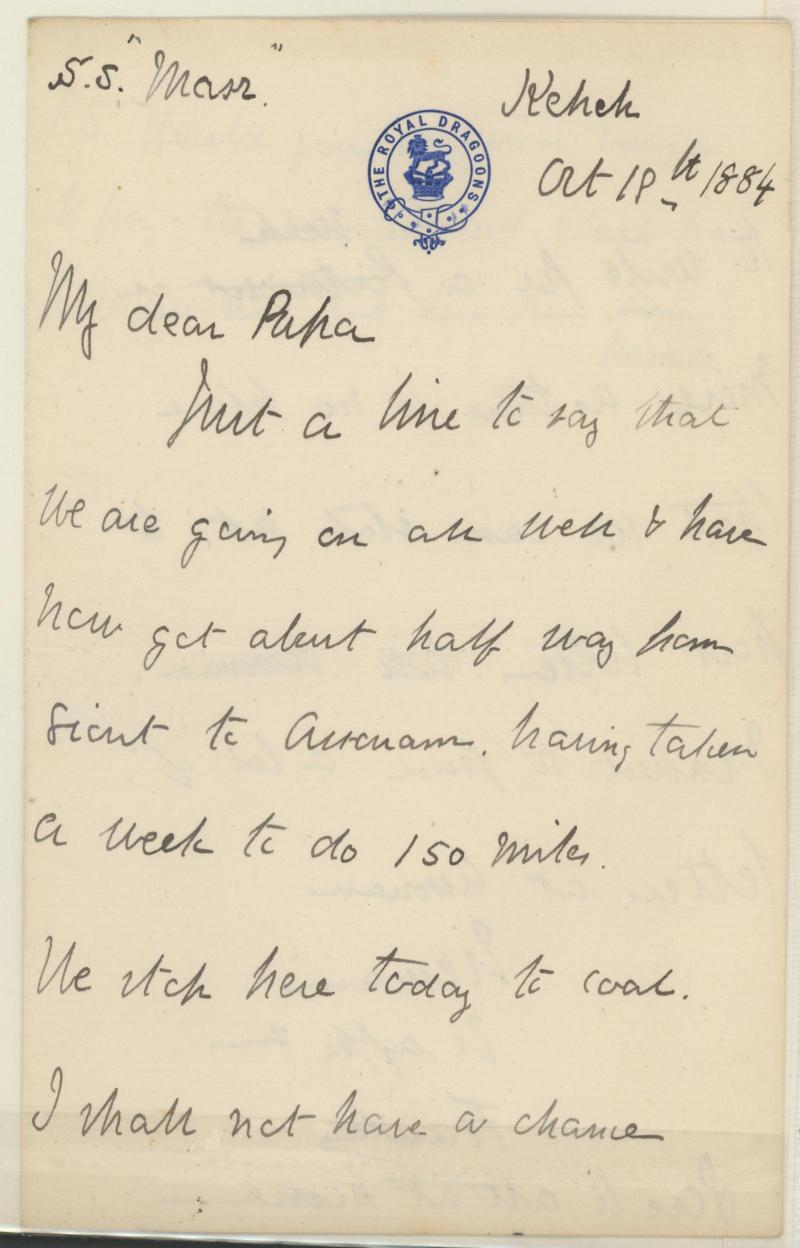 S.S. "Masr."
Keneh
Oct 18th 1884
THE ROYAL DRAGOONS
My dear Papa
Just a line to say that
we are going on all well & have
now got about half way from
Siout to Assouan, having taken
a week to do 150 miles.
We stop here today to coal.
I shall not have a chance